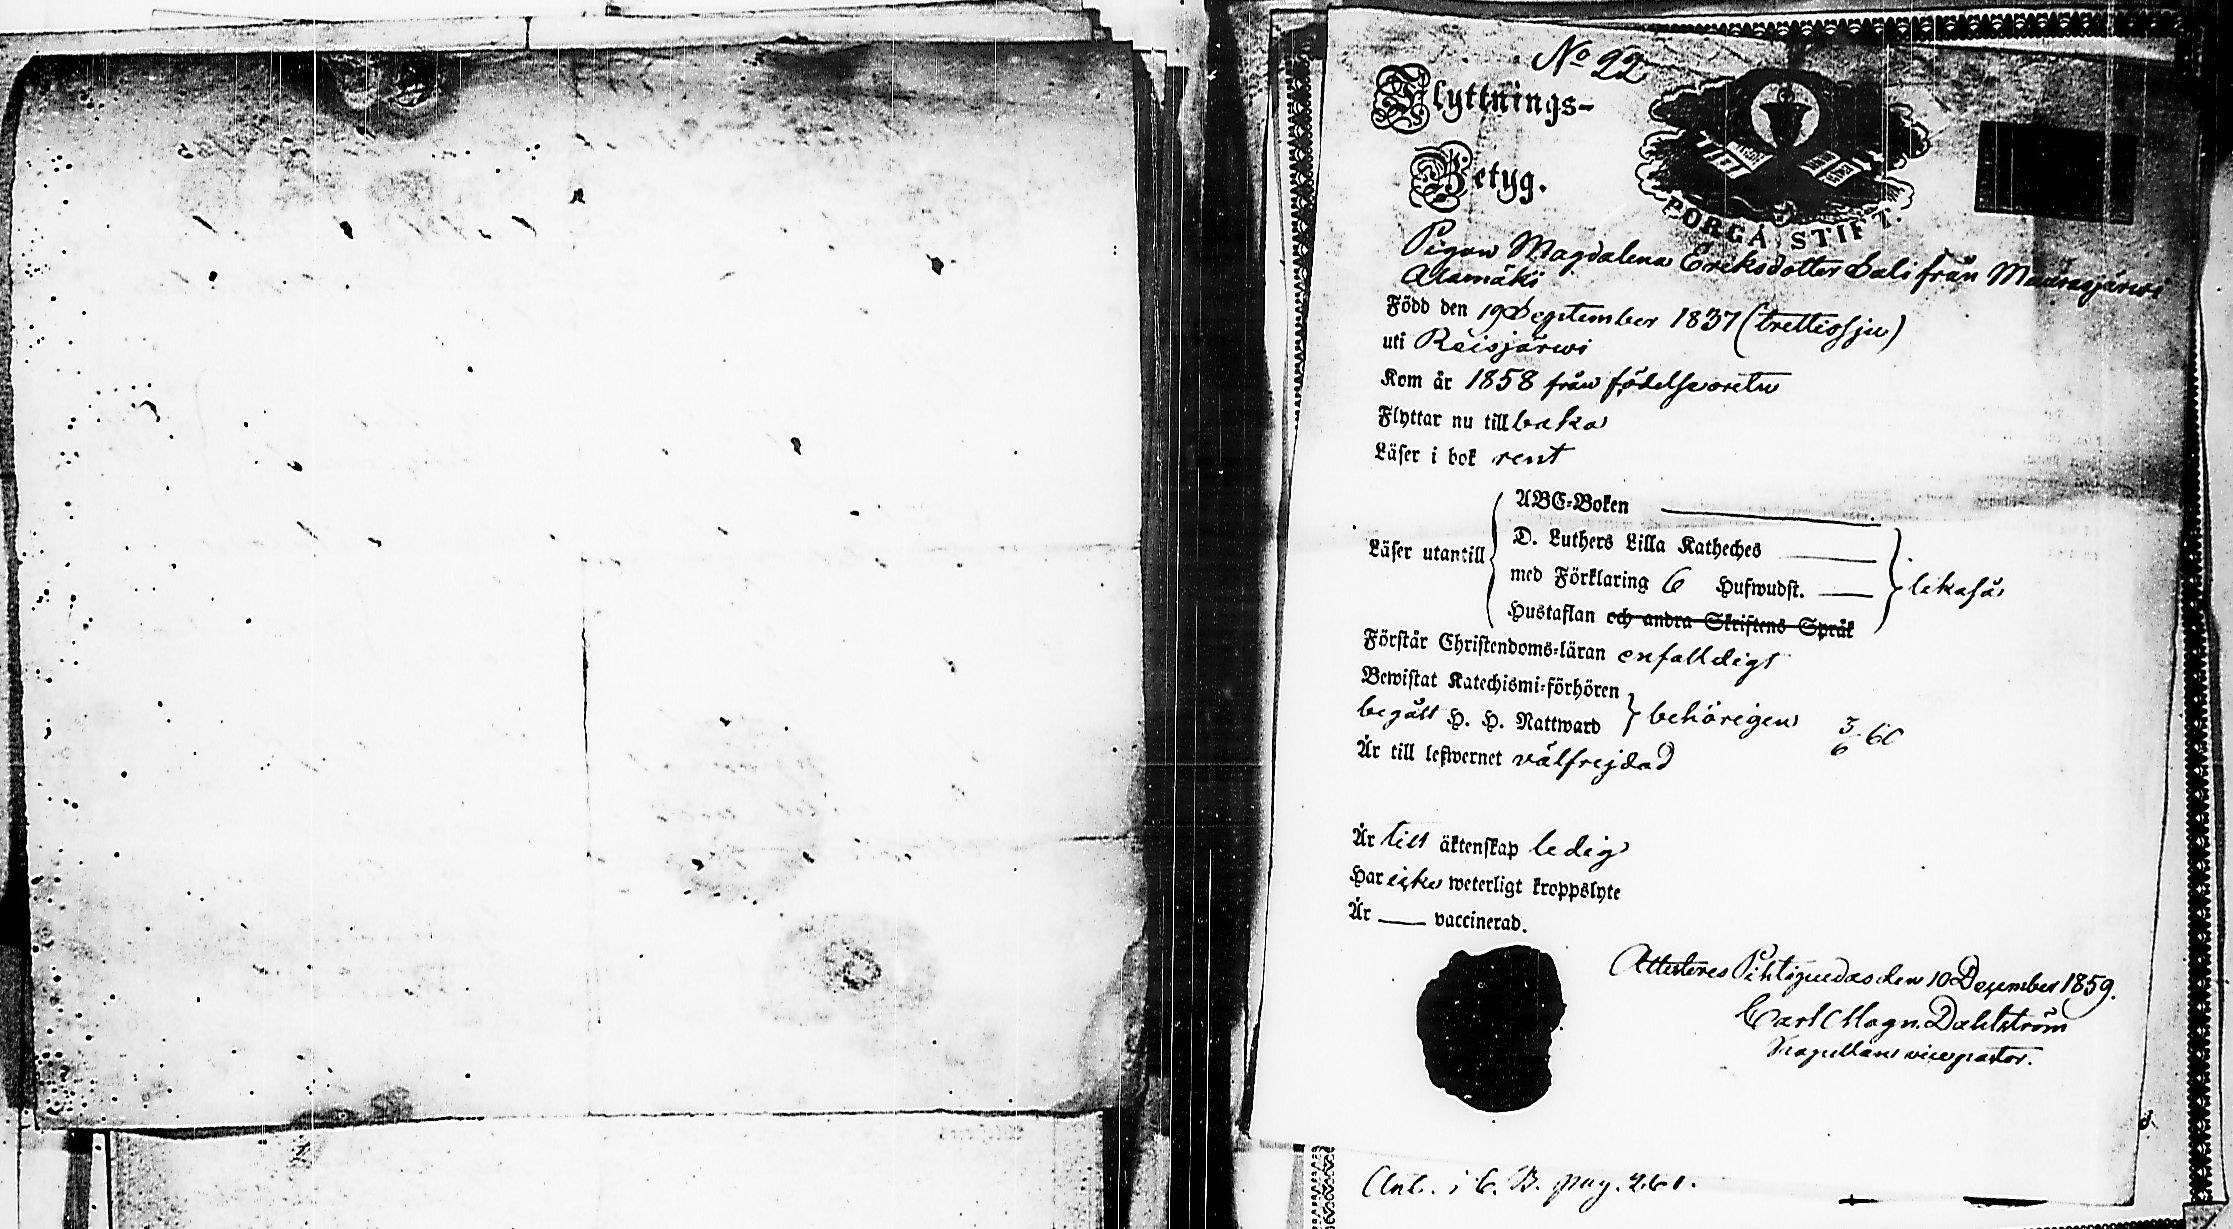 No 22
Flyttnings-
Betyg.
BORGÅ STIFT.
Pigan Magdalena Eriksdotter Sali från Muurasjärwi
Alamäki
Född den 19 September 1837 (trettiosju)
uti Reisjärwi
Kom år 1858 från födelseorten
Flyttar nu till baka
Läser i bok rent
ABC-Boken
D. Luthers Lilla Katheches
Läser utantill med Förklaring 6 Hufwudst. likaså
Hustaflan och andra Skriftens Språk
Förstår Christendoms-läran enfaldigt
Bewistat Katechismi-förhören
begått H. H. Nattward behörigen 3/6 60
Är till lefwernet välfrejdad
Är till äktenskap ledig
Har icke weterligt kroppslyte
Är — vaccinerad.
Attesteres Pihtipudas den 10 December 1859.
Carl Magn. Dahlström
Kapellan vicepastor.
Ant. i C. B. pag. 261.